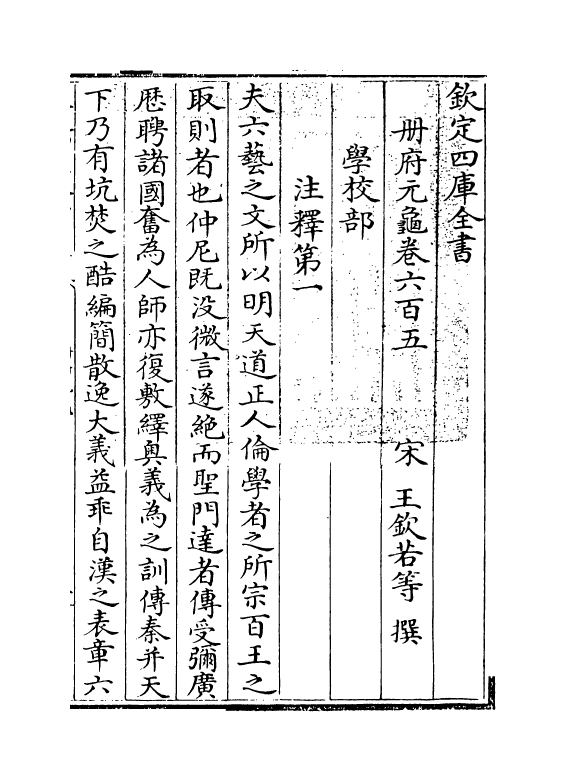 欽定四庫全書
册府元龜卷六百五　宋　王欽若等　撰
學校部
注釋第一
夫六藝之文所以明天道正人倫學者之所宗百王之
取則者也仲尼既没微言遂絶而聖門達者傳受彌廣
歴聘諸國奮為人師亦復敷繹奥義為之訓傳秦并天
下乃有坑焚之酷編簡散逸大義益乖自漢之表章六